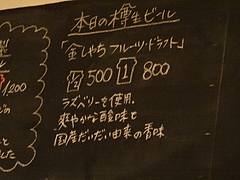 本日の樽生ビール
「金しゃち フルーツ・ドラフト」
1/2 500 1 800
ラズベリーを使用。
爽やかな酸味と
国産だいだい由来の香味
1,200